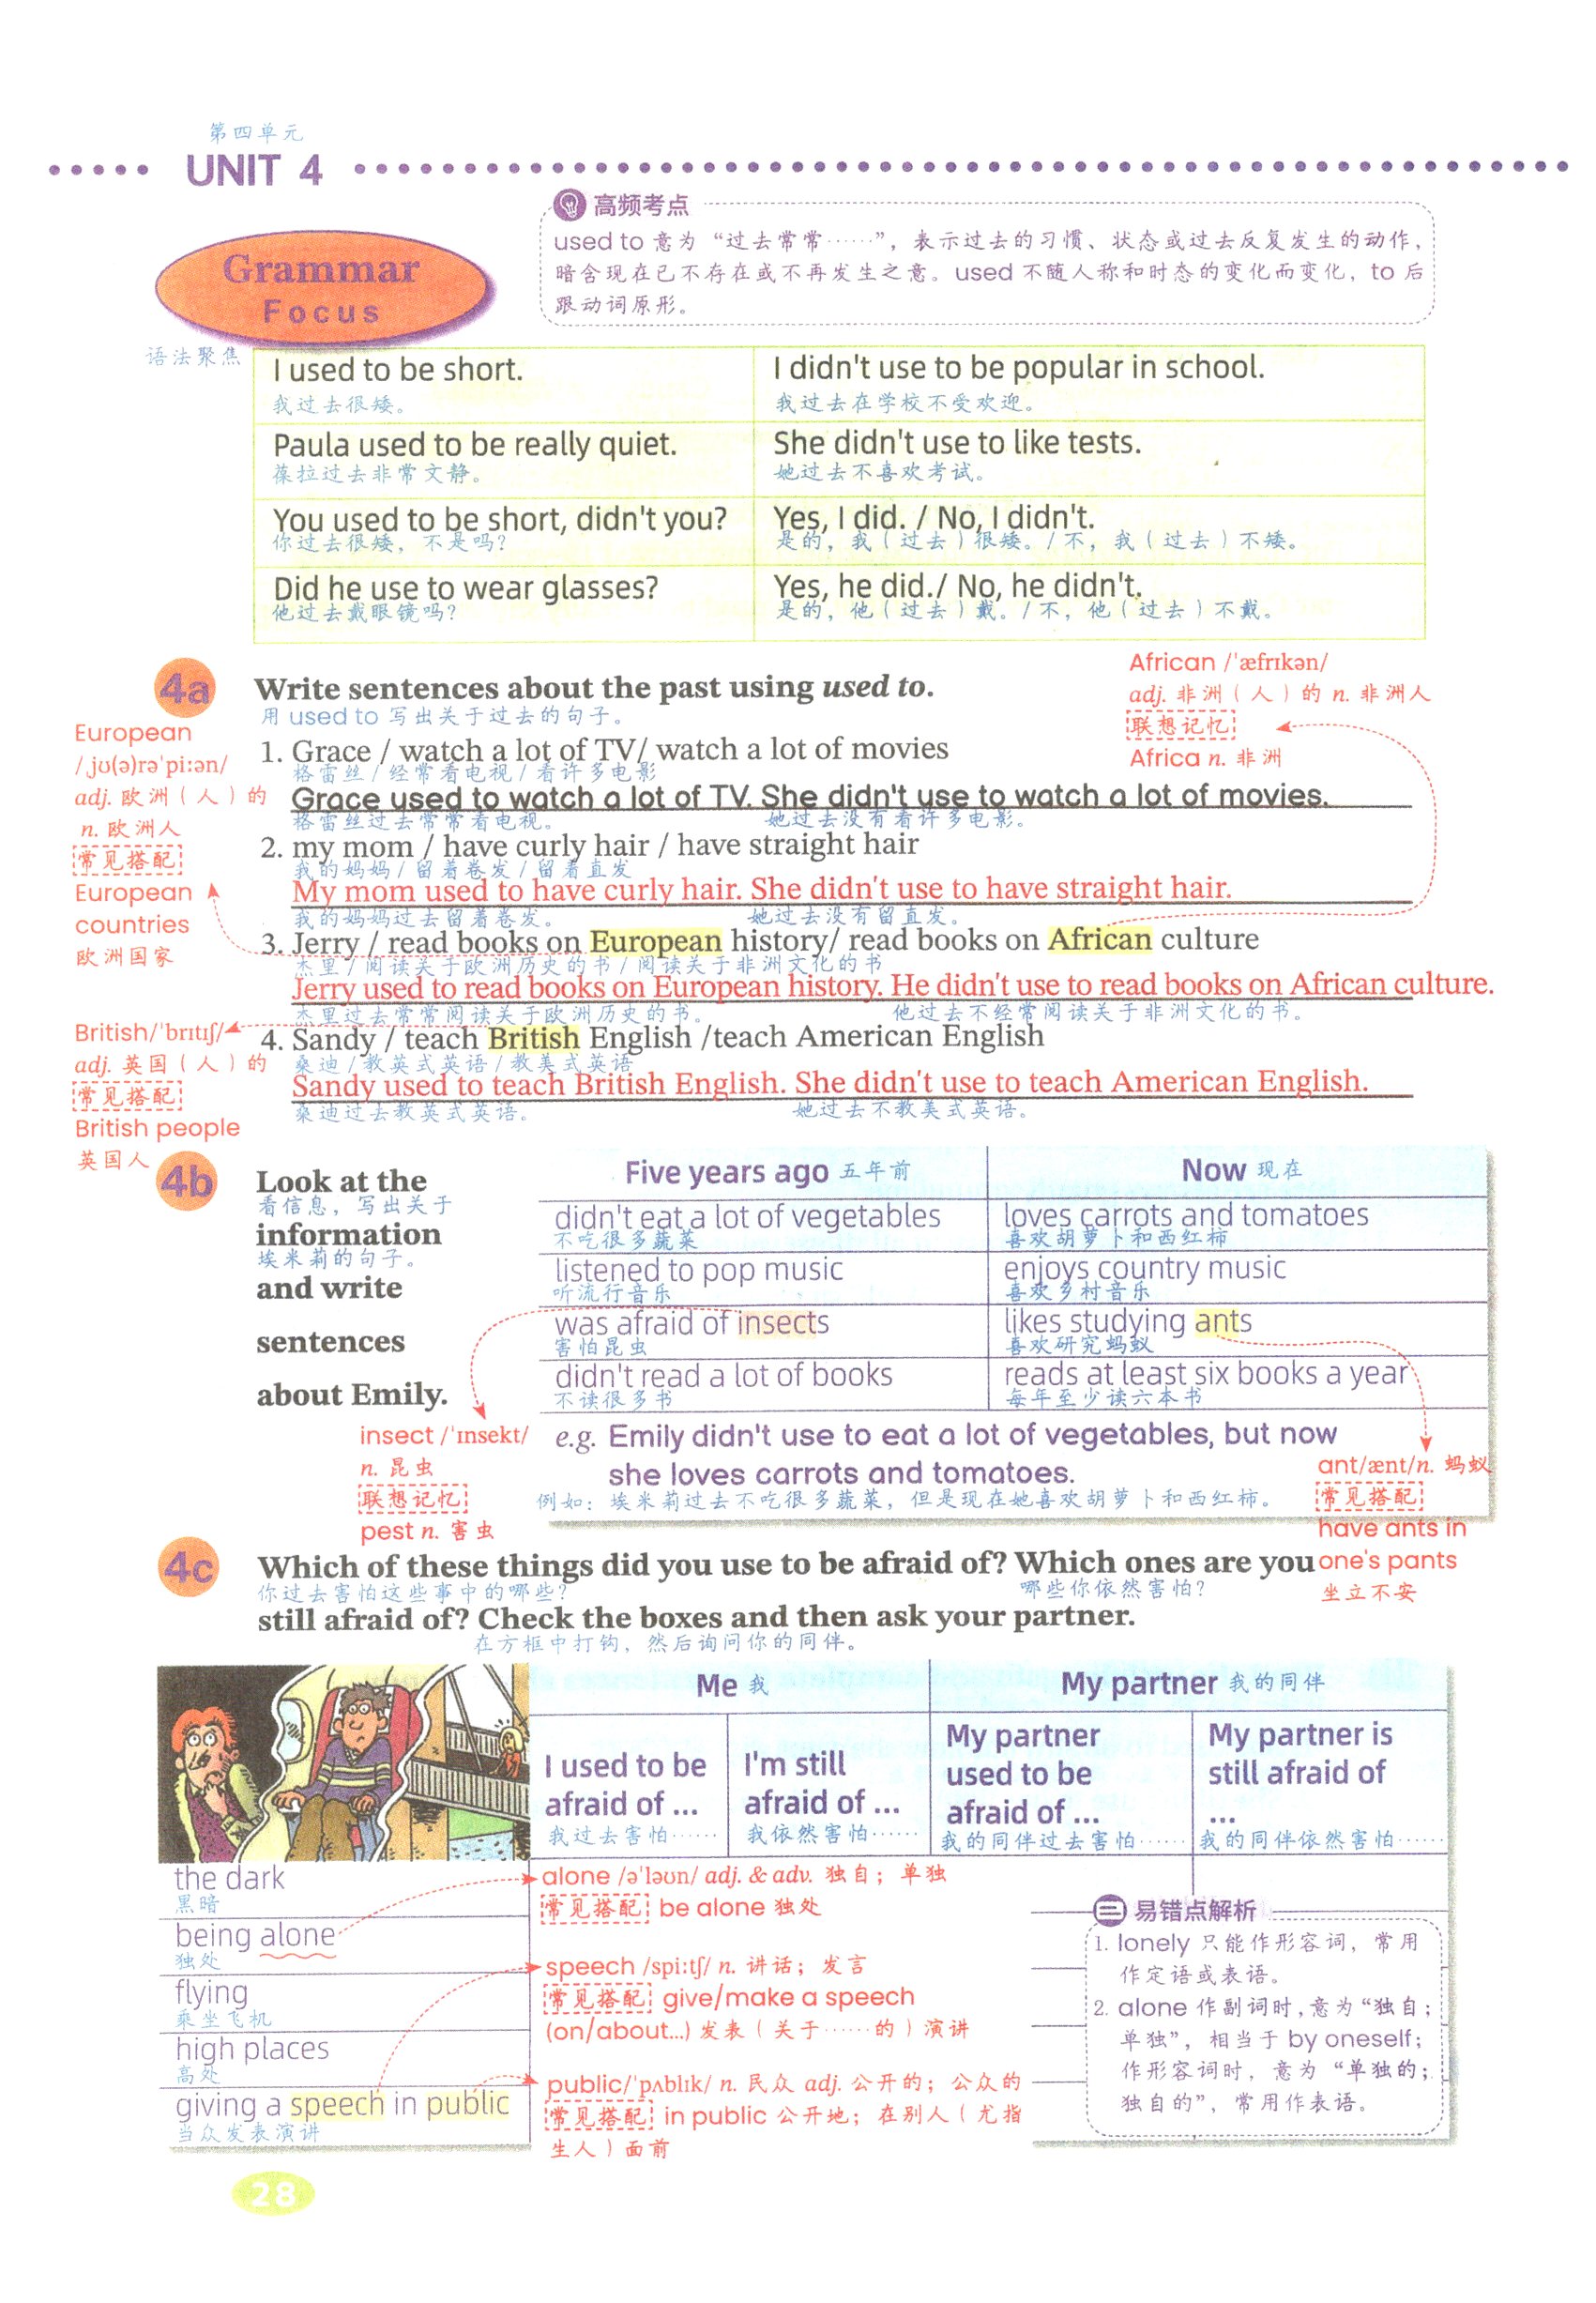 第四单元
UNIT 4
高频考点
used to 意为“过去常常……”，表示过去的习惯、状态或过去反复发生的动作，
暗含现在已不存在或不再发生之意。used 不随人称和时态的变化而变化，to 后
跟动词原形。
Grammar
Focus
语法聚焦
I used to be short.
我过去很矮。
I didn't use to be popular in school.
我过去在学校不受欢迎。
Paula used to be really quiet.
葆拉过去非常文静。
She didn't use to like tests.
她过去不喜欢考试。
You used to be short, didn't you?
你过去很矮，不是吗？
Yes, I did. / No, I didn't.
是的，我（过去）很矮。/ 不，我（过去）不矮。
Did he use to wear glasses?
他过去戴眼镜吗？
Yes, he did./ No, he didn't.
是的，他（过去）戴。/ 不，他（过去）不戴。
4a
Write sentences about the past using used to.
用 used to 写出关于过去的句子。
African /ˈæfrɪkən/
adj. 非洲（人）的 n. 非洲人
联想记忆
Africa n. 非洲
European
/ˌjʊ(ə)rəˈpiːən/
adj. 欧洲（人）的
n. 欧洲人
常见搭配
European
countries
欧洲国家
1. Grace / watch a lot of TV/ watch a lot of movies
格雷丝 / 经常看电视 / 看许多电影
Grace used to watch a lot of TV. She didn't use to watch a lot of movies.
格雷丝过去常常看电视。 她过去没有看许多电影。
2. my mom / have curly hair / have straight hair
我的妈妈 / 留着卷发 / 留着直发
My mom used to have curly hair. She didn't use to have straight hair.
我的妈妈过去留着卷发。 她过去没有留直发。
3. Jerry / read books on European history/ read books on African culture
杰里 / 阅读关于欧洲历史的书 / 阅读关于非洲文化的书
Jerry used to read books on European history. He didn't use to read books on African culture.
杰里过去常常阅读关于欧洲历史的书。 他过去不经常阅读关于非洲文化的书。
4. Sandy / teach British English /teach American English
桑迪 / 教英式英语 / 教美式英语
Sandy used to teach British English. She didn't use to teach American English.
桑迪过去教英式英语。 她过去不教美式英语。
British/ˈbrɪtɪʃ/
adj. 英国（人）的
常见搭配
British people
英国人
4b
Look at the
看信息，写出关于
information
埃米莉的句子。
and write
sentences
about Emily.
Five years ago 五年前
Now 现在
didn't eat a lot of vegetables
不吃很多蔬菜
loves carrots and tomatoes
喜欢胡萝卜和西红柿
listened to pop music
听流行音乐
enjoys country music
喜欢乡村音乐
was afraid of insects
害怕昆虫
likes studying ants
喜欢研究蚂蚁
didn't read a lot of books
不读很多书
reads at least six books a year
每年至少读六本书
e.g. Emily didn't use to eat a lot of vegetables, but now
she loves carrots and tomatoes.
例如：埃米莉过去不吃很多蔬菜，但是现在她喜欢胡萝卜和西红柿。
insect /ˈɪnsekt/
n. 昆虫
联想记忆
pest n. 害虫
ant/ænt/n. 蚂蚁
常见搭配
have ants in
one's pants
坐立不安
4c
Which of these things did you use to be afraid of? Which ones are you
你过去害怕这些事中的哪些？ 哪些你依然害怕？
still afraid of? Check the boxes and then ask your partner.
在方框中打钩，然后询问你的同伴。
Me 我
My partner 我的同伴
I used to be
afraid of ...
我过去害怕……
I'm still
afraid of ...
我依然害怕……
My partner
used to be
afraid of ...
我的同伴过去害怕……
My partner is
still afraid of
...
我的同伴依然害怕……
the dark
黑暗
being alone
独处
flying
乘坐飞机
high places
高处
giving a speech in public
当众发表演讲
alone /əˈləʊn/ adj. & adv. 独自；单独
常见搭配 be alone 独处
speech /spiːtʃ/ n. 讲话；发言
常见搭配 give/make a speech
(on/about...) 发表（关于……的）演讲
public/ˈpʌblɪk/ n. 民众 adj. 公开的；公众的
常见搭配 in public 公开地；在别人（尤指
生人）面前
易错点解析
1. lonely 只能作形容词，常用
作定语或表语。
2. alone 作副词时，意为“独自；
单独”，相当于 by oneself；
作形容词时，意为“单独的；
独自的”，常用作表语。
28